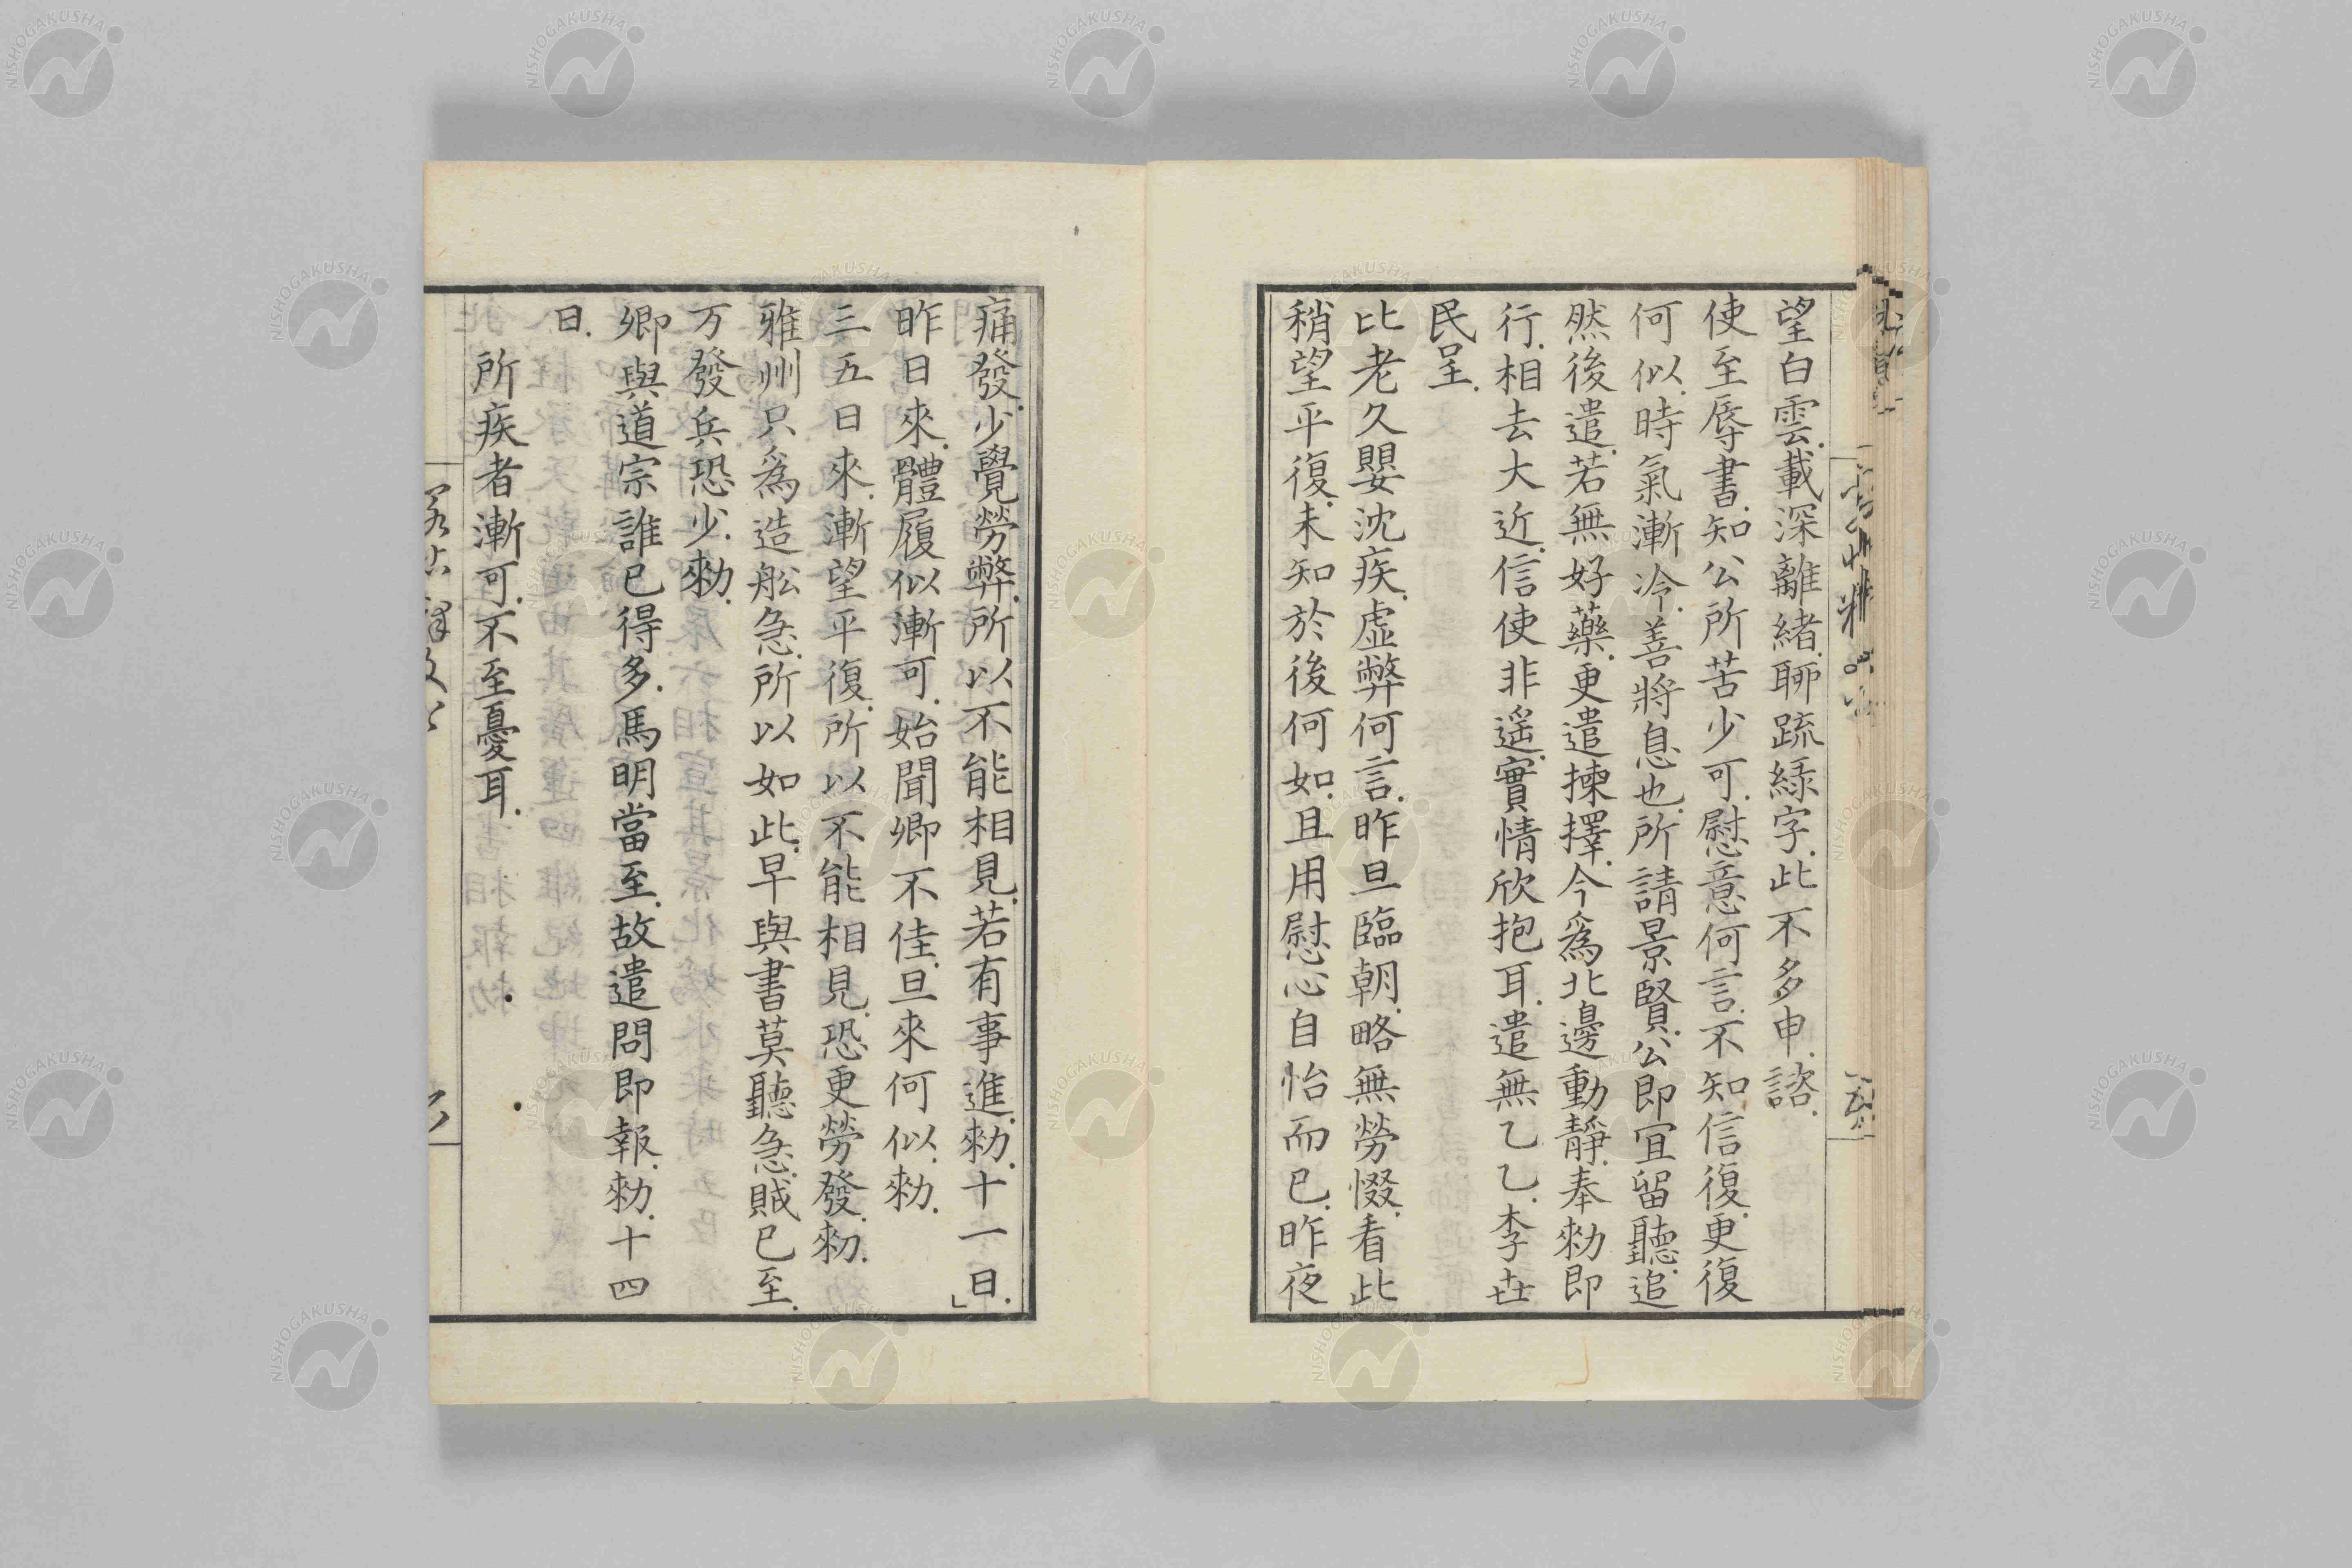 望白雲載深離緒聊疏綠字此不多申諮
使至辱書知公所苦少可慰意何言不知信復更復
何似時氣漸冷善將息也所請景賢公即宜留聽追
然後遣若無好藥更遣揀擇今爲北邊動靜奉勑即
行相去大近信使非遥實情欣抱耳遣無乙乙李世
民呈
比老久嬰沈疾虛弊何言昨旦臨朝略無勞惙看此
稍望平復未知於後何如且用慰心自怡而已昨夜
痛發少覺勞弊所以不能相見若有事進勑十一日
昨日來體履似漸可始聞卿不佳旦來何似勑
三五日來漸望平復所以不能相見恐更勞發勑
雅州只爲造舩急所以如此早與書莫聽急賊已至
万發兵恐少勑
卿與道宗誰已得多馬明當至故遣問即報勑十四
日
所疾者漸可不至憂耳